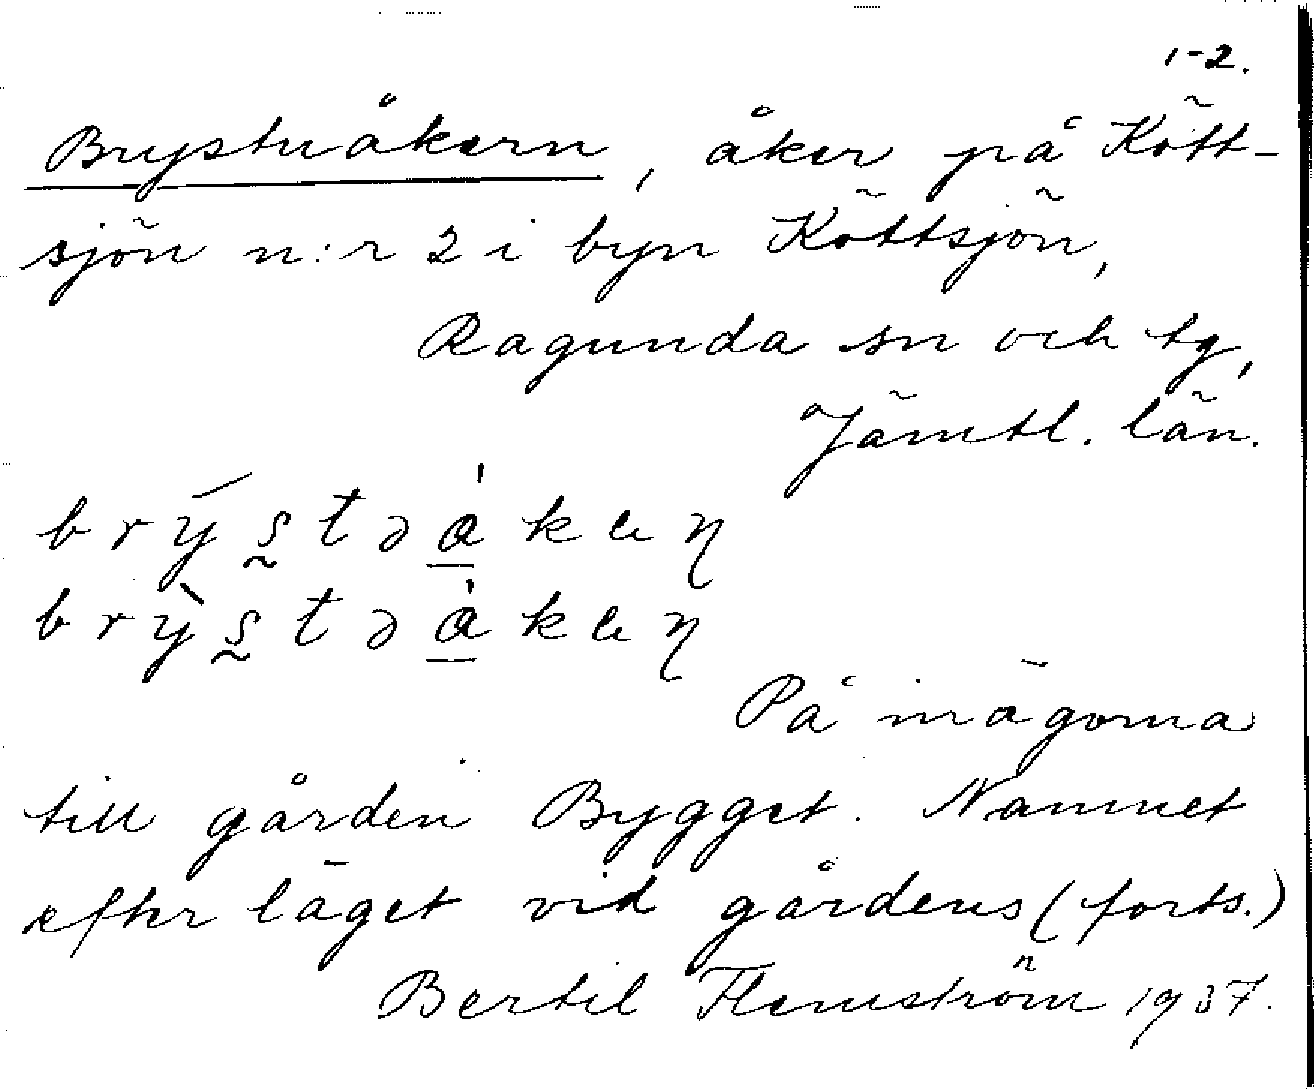 1-2.
Brysteåkern, åker på Kött-
sjön n:r 2 i byn Köttsjön,
Ragunda sn och tg,
Jämtl. län.
På inägorna
till gården Bygget. Namnet
efter läget vid gårdens (forts.)
Bertil Flemström 1937.